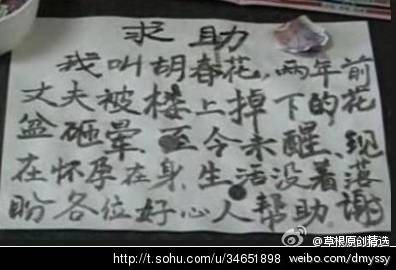 求助
我叫胡春花,两年前
丈夫被楼上掉下的花
盆砸晕、至今未醒、现
在怀孕在身,生活没着落
盼各位好心人帮助.谢
@草根原创精选
http://t.sohu.com/u/34651898 weibo.com/dmyssy